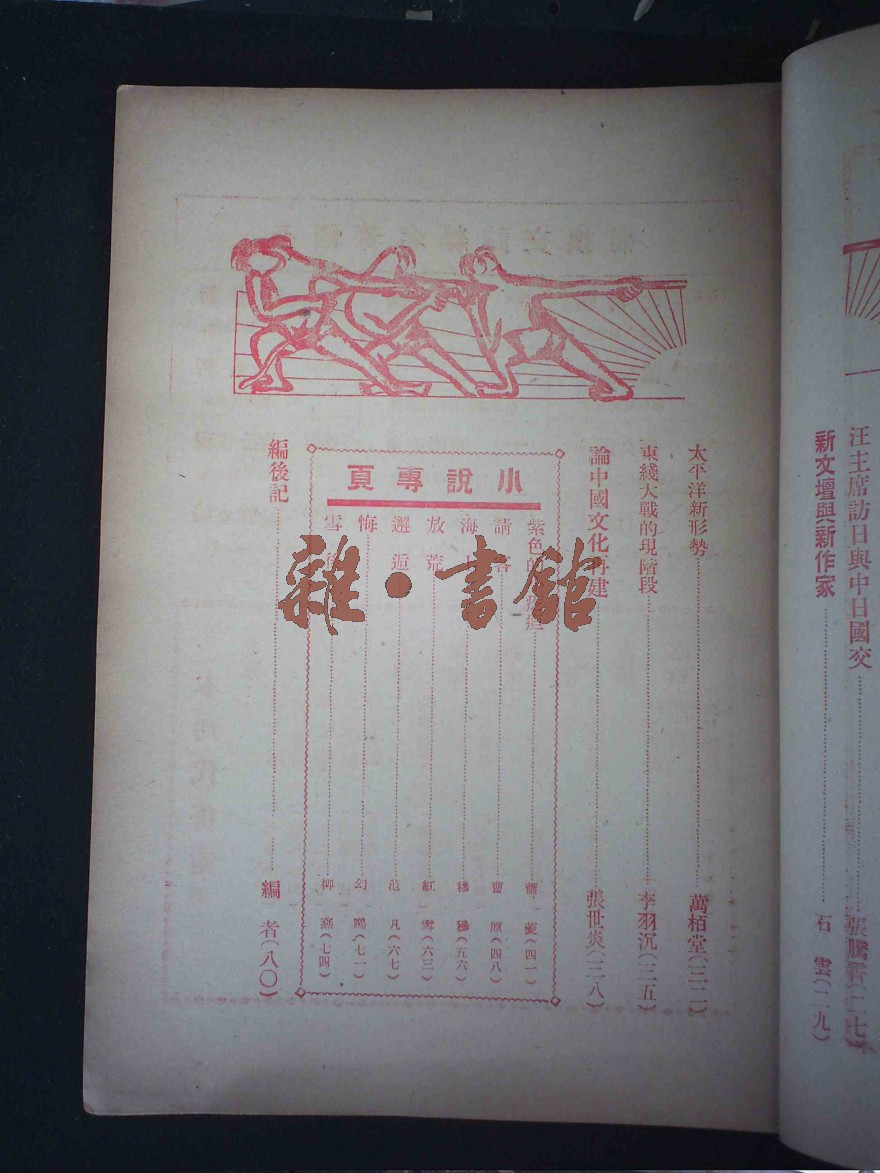 汪主席訪日與中日國交 張騰霄(二七)
新文壇與新作家 石 雲(二九)
太平洋新形勢 萬栢堂(三二)
東綫大戰的現階段 李羽沉(三五)
論中國文化再建 張世炎(三八)
小說專頁
紫色的 (四一)
請客 曹 原(四八)
海 穆 穆(五六)
放荒 紅 雪(六三)
邂逅 范 凡(六七)
悔 幻 鷗(七一)
雪 柳 燕(七四)
編後記 編 者(八〇)
雜·書館